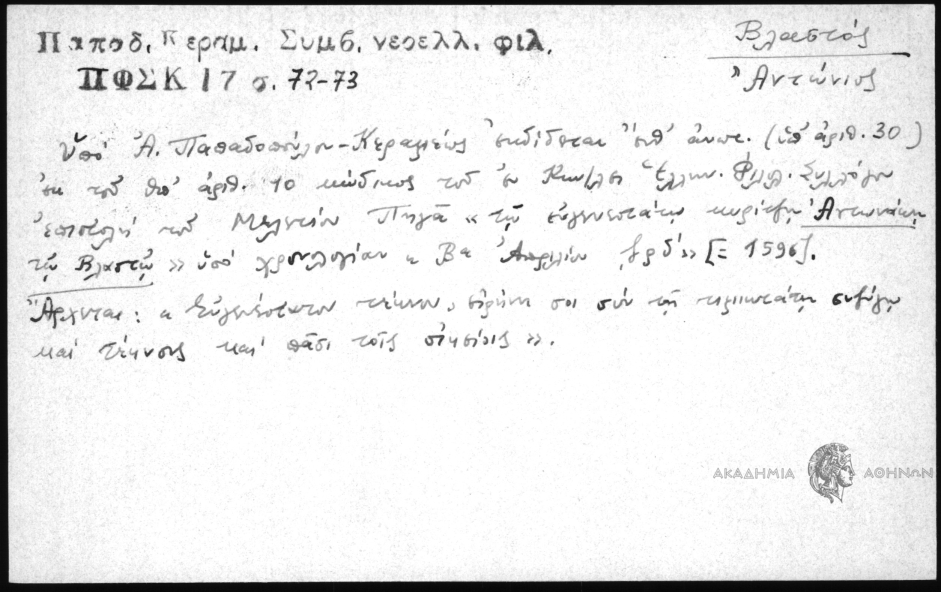 Παπαδ. Κεραμ. Συμβ. νεοελλ. φιλ.
ΠΦΣΚ 17 σ. 72-73
Βλαστός
Ἀντώνιος
Ὑπό Ἀ. Παπαδοπούλου-Κεραμέως ἐκδίδεται (ὑπ' ἀριθ. 30)
ἐκ τοῦ ὑπ' ἀριθ. 10 κώδικος τοῦ ἐν Κων/λει Ἑλλην. Φιλολ. Συλλόγου
ἐπιστολή τοῦ Μελετίου Πηγᾶ «τῷ εὐγενεστάτῳ κυρίτζῃ Ἀντωνάκῃ
τῷ Βλαστῷ» ὑπό χρονολογίαν « Ἀπριλίου ͵ζρδ'» [= 1596].
Ἄρχεται: « Εὐγενέστατον τέκνον, εἰρήνη σοι σύν τῇ τιμιωτάτῃ συζύγῳ
καί τέκνοις καί πᾶσι τοῖς οἰκείοις ».
ΑΚΑΔΗΜΙΑ ΑΘΗΝΩΝ